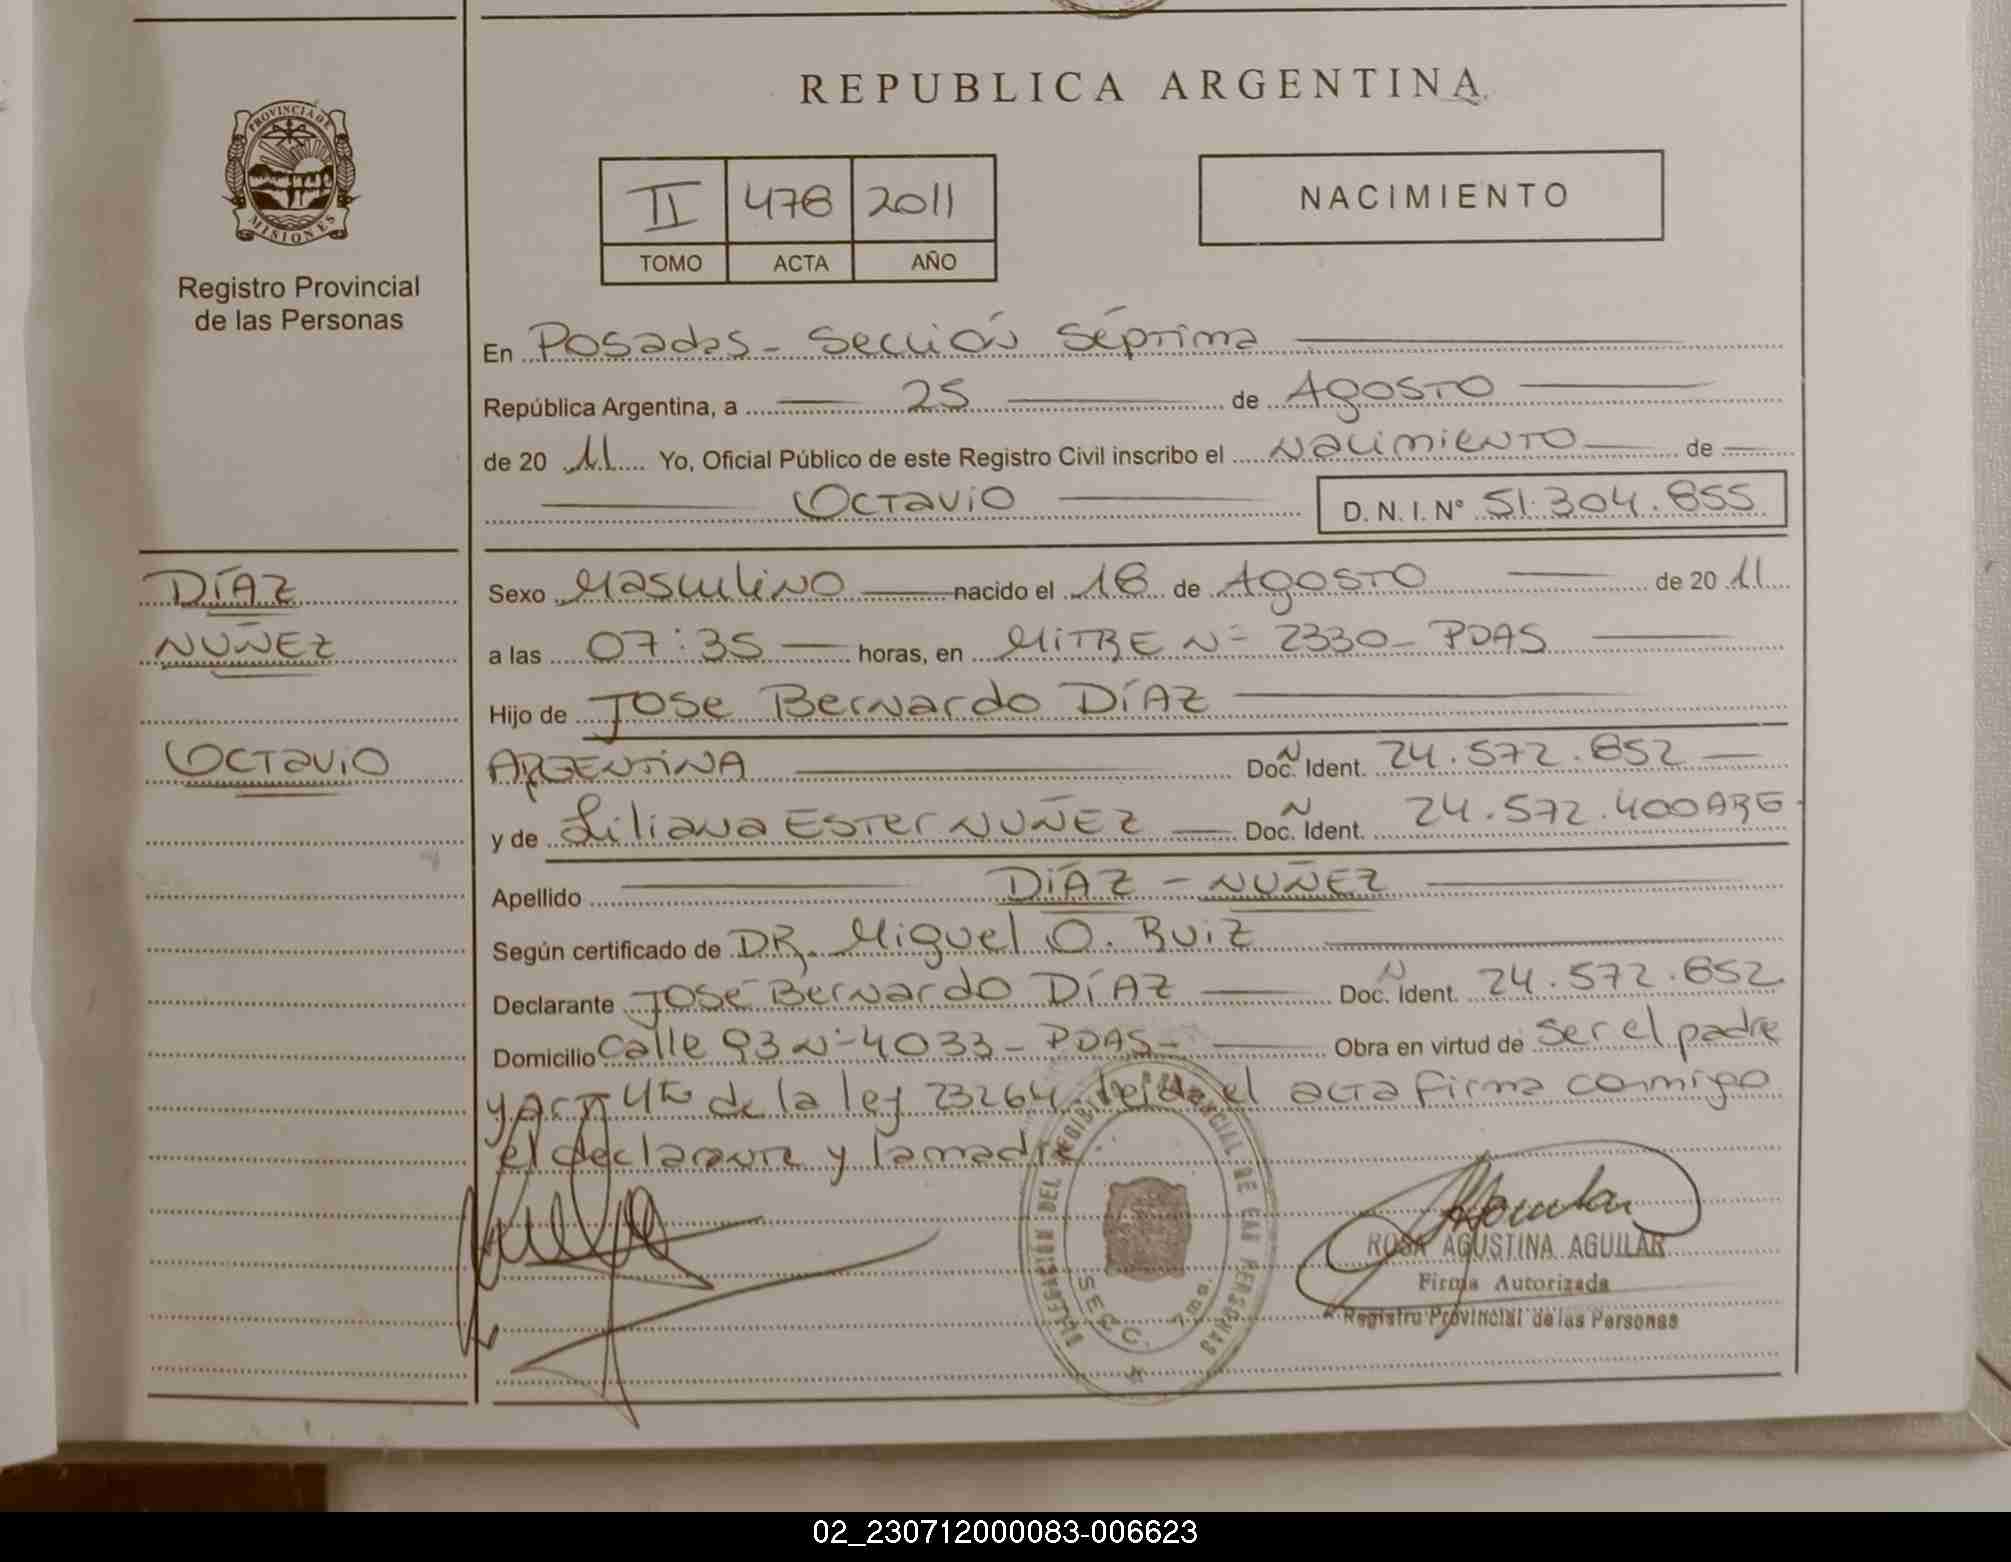 REPUBLICA ARGENTINA
PROVINCIA DE
MISIONES
Registro Provincial
de las Personas
II 478 2011
TOMO ACTA AÑO
NACIMIENTO
En Posadas - Sección Séptima
República Argentina, a 25 de Agosto
de 20 11 Yo, Oficial Público de este Registro Civil inscribo el Nacimiento de
Octavio D. N. I. N° 51.304.855
DÍAZ
NUÑEZ
OCTAVIO
Sexo Masculino nacido el 18 de Agosto de 20 11
a las 07:35 horas, en MITRE N° 2330 - PDAS
Hijo de Jose Bernardo DÍAZ
ARGENTINA Doc. Ident. 24.572.852
y de Liliana Ester NUÑEZ Doc. Ident. 24.572.400 ARG
Apellido DÍAZ - NUÑEZ
Según certificado de DR. Miguel O. Ruiz
Declarante José Bernardo DÍAZ Doc. Ident. 24.572.852
Domicilio Calle 93 N° 4033 - PDAS - Obra en virtud de ser el padre
y Art 4to de la ley 23264 leida el acta firma conmigo
el declarante y la madre.
DELEGACIÓN DEL REGISTRO PROVINCIAL DE LAS PERSONAS
SECC. 7ma.
ROSA AGUSTINA AGUILAR
Firma Autorizada
Registro Provincial de las Personas
02_230712000083-006623